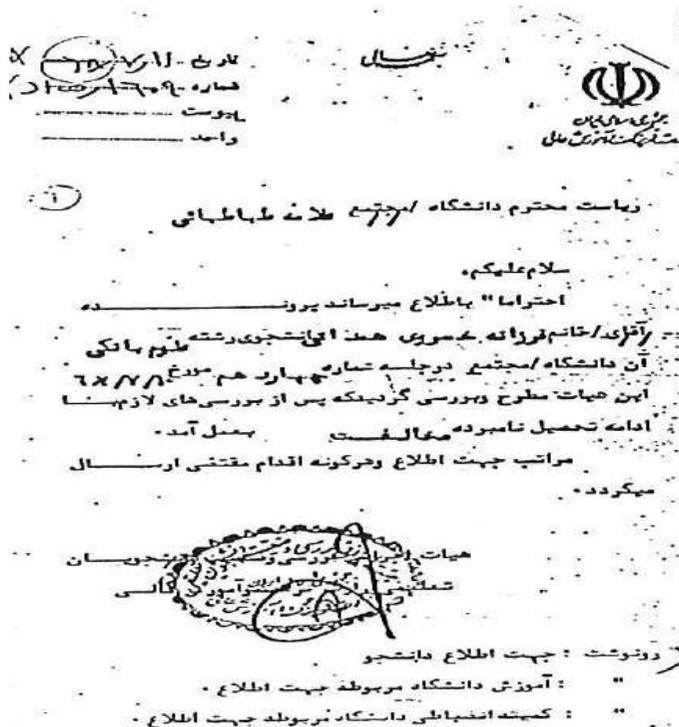 بسمه تعالی
تاریخ
شماره
پیوست
واحد
جمهوری اسلامی ایران
وزارت فرهنگ و آموزش عالی
۱
ریاست محترم دانشگاه / مجتمع علامه طباطبائی
سلام علیکم،
احتراما" باطلاع میرساند پرونـــــده
آقای/خانم فرزانه عموی همدانی دانشجوی رشته علوم بانکی
آن دانشگاه / مجتمع درجلسه شماره چهارد هم مورخ
این هیات مطرح وبررسی گردیدکه پس از بررسی‌های لازم بـــا
ادامه تحصیل نامبرده مخالفـــت بعمل آمد.
مراتب جهت اطلاع وهرگونه اقدام مقتضی ارســـال
میگردد.
هیات
رونوشت : جهت اطلاع دانشجو
" : آموزش دانشگاه مربوطه جهت اطلاع .
" : کمیته انضباطی دانشگاه مربوطه جهت اطلاع .